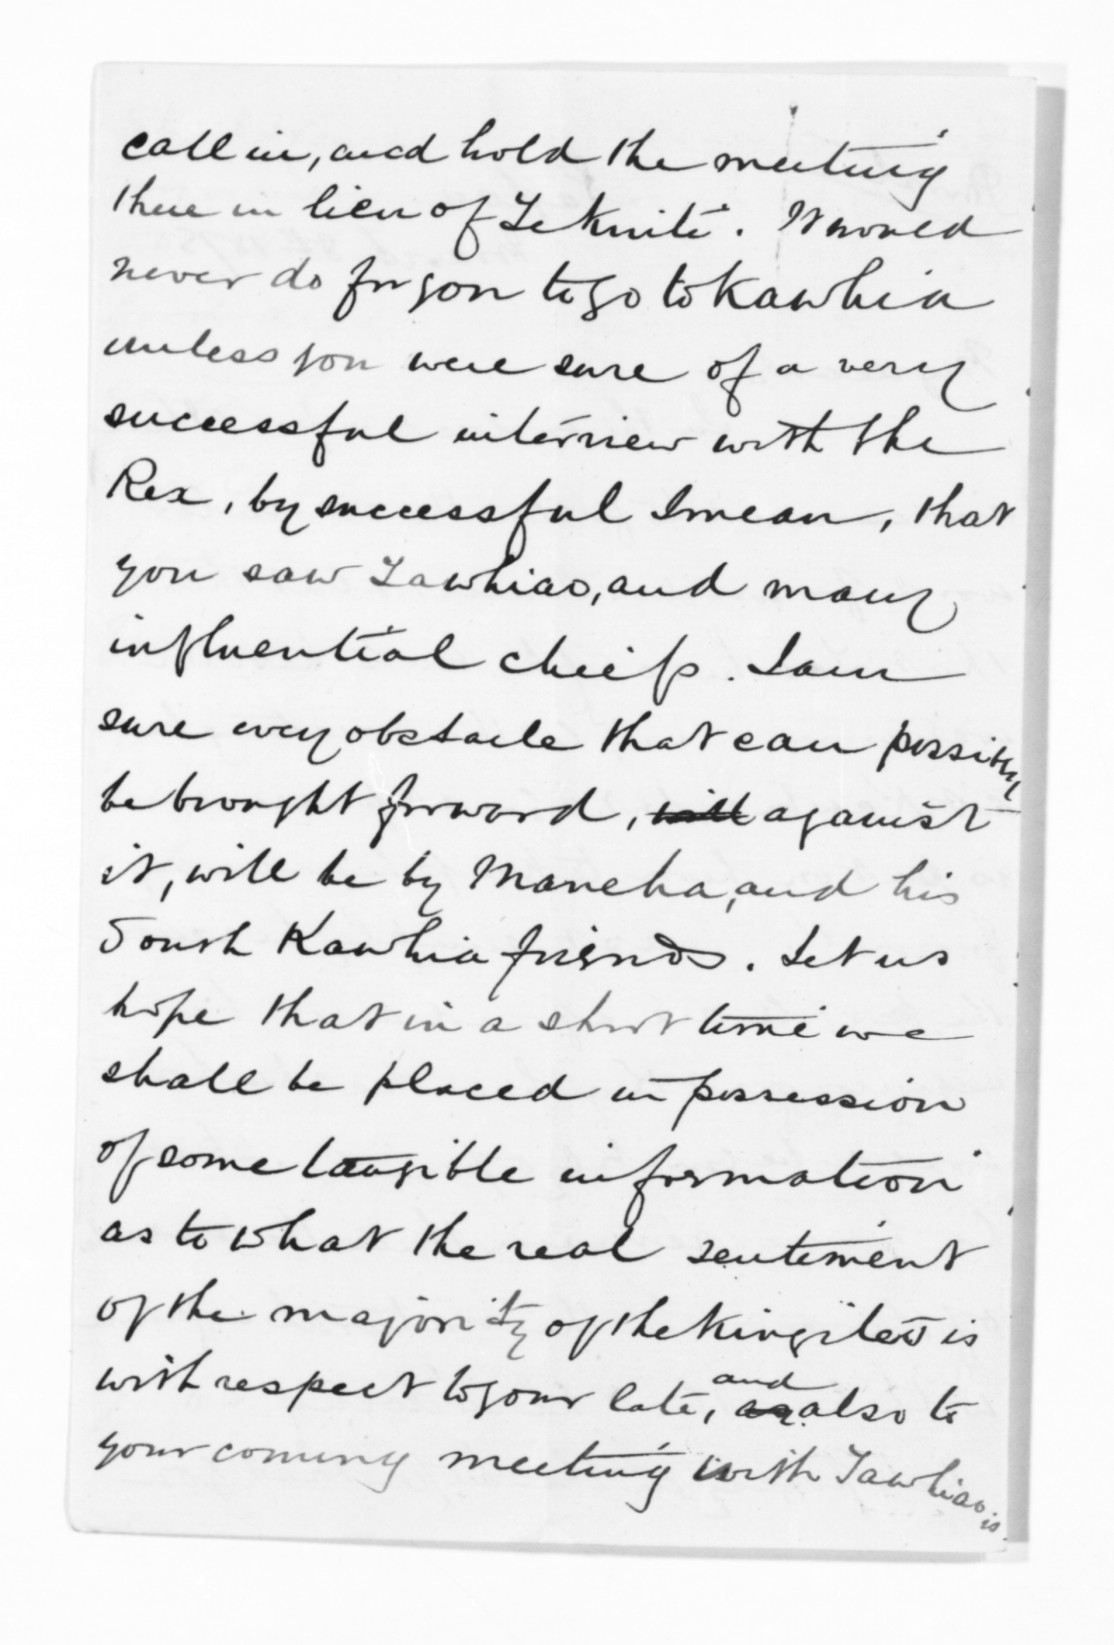 call in, and hold the meeting
there in lieu of Te Kuiti. It would
never do for you to go to Kawhia
unless you were sure of a very
successful interview with the
Rex, by successful I mean, that
you saw Tawhiao, and many
influential chiefs. I am
sure every obstacle that can possibly
be brought forward, will against
it, will be by Maneha, and his
South Kawhia friends. Let us
hope that in a short time we
shall be placed in possession
of some tangible information
as to what the real sentiment
of the majority of the Kingites is
with respect to your late, as and also to
your coming meeting with Tawhiao is